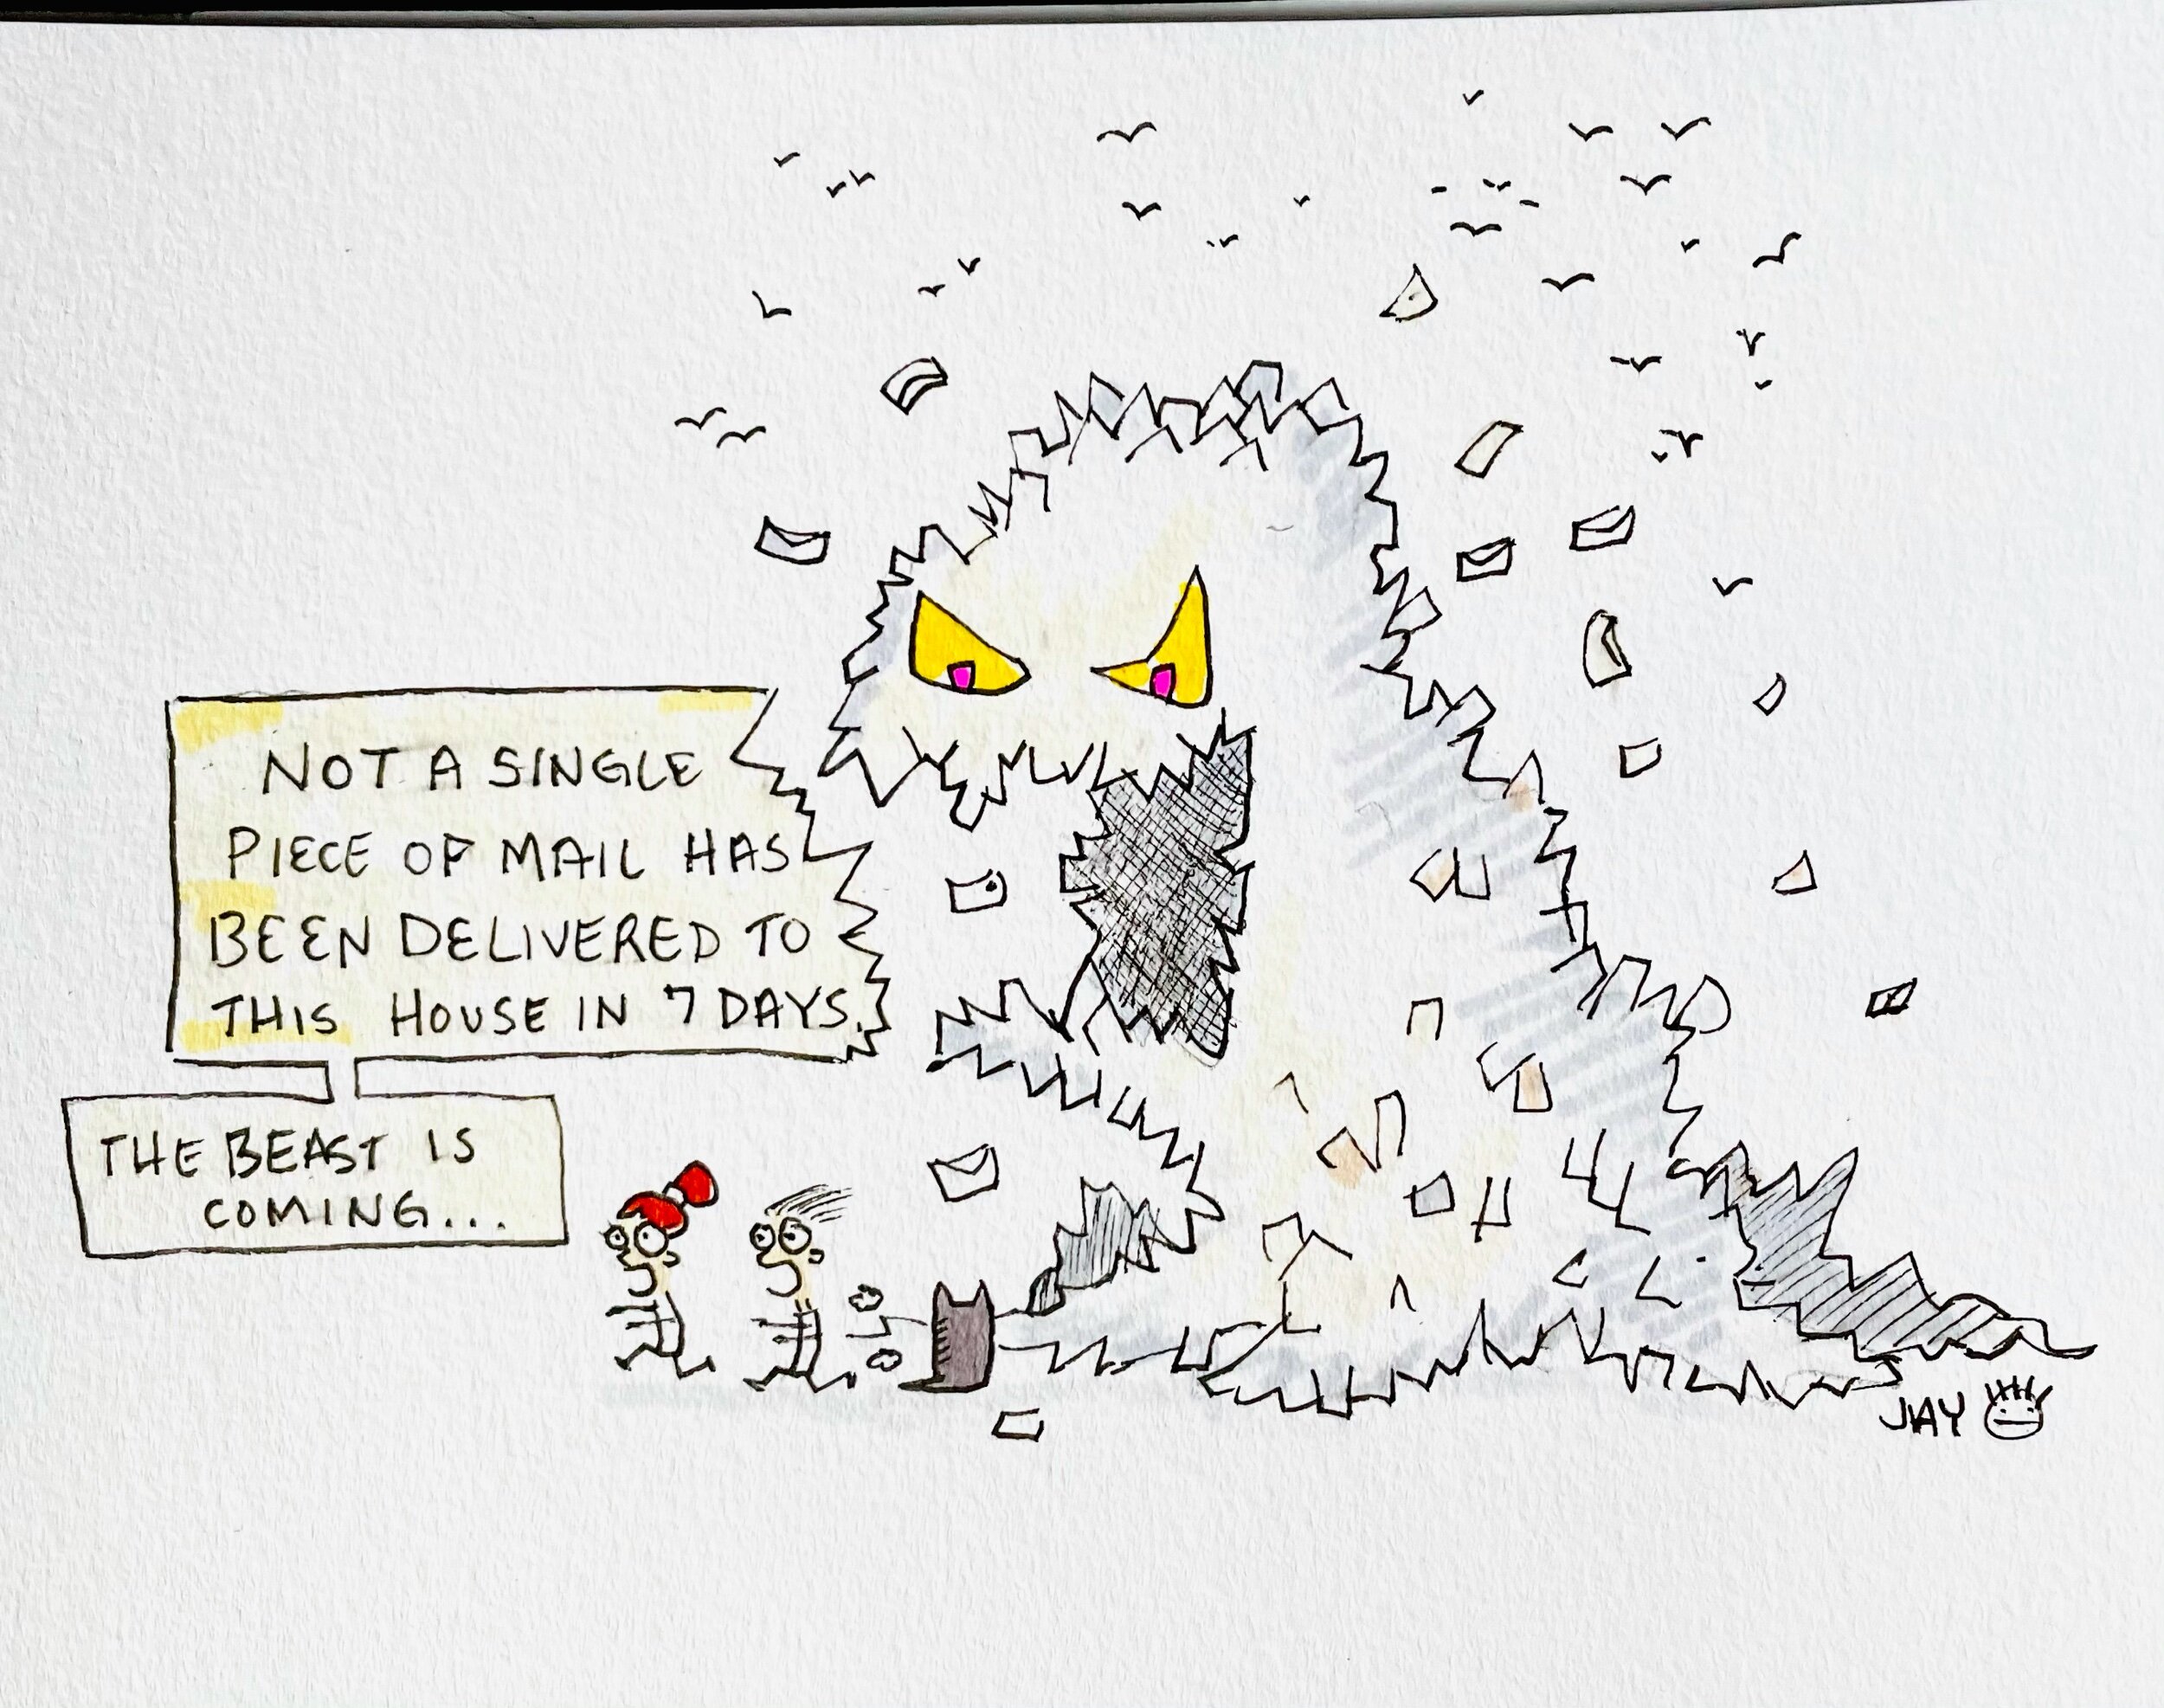 NOT A SINGLE
PIECE OF MAIL HAS
BEEN DELIVERED TO
THIS HOUSE IN 7 DAYS.
THE BEAST IS
COMING...
JAY